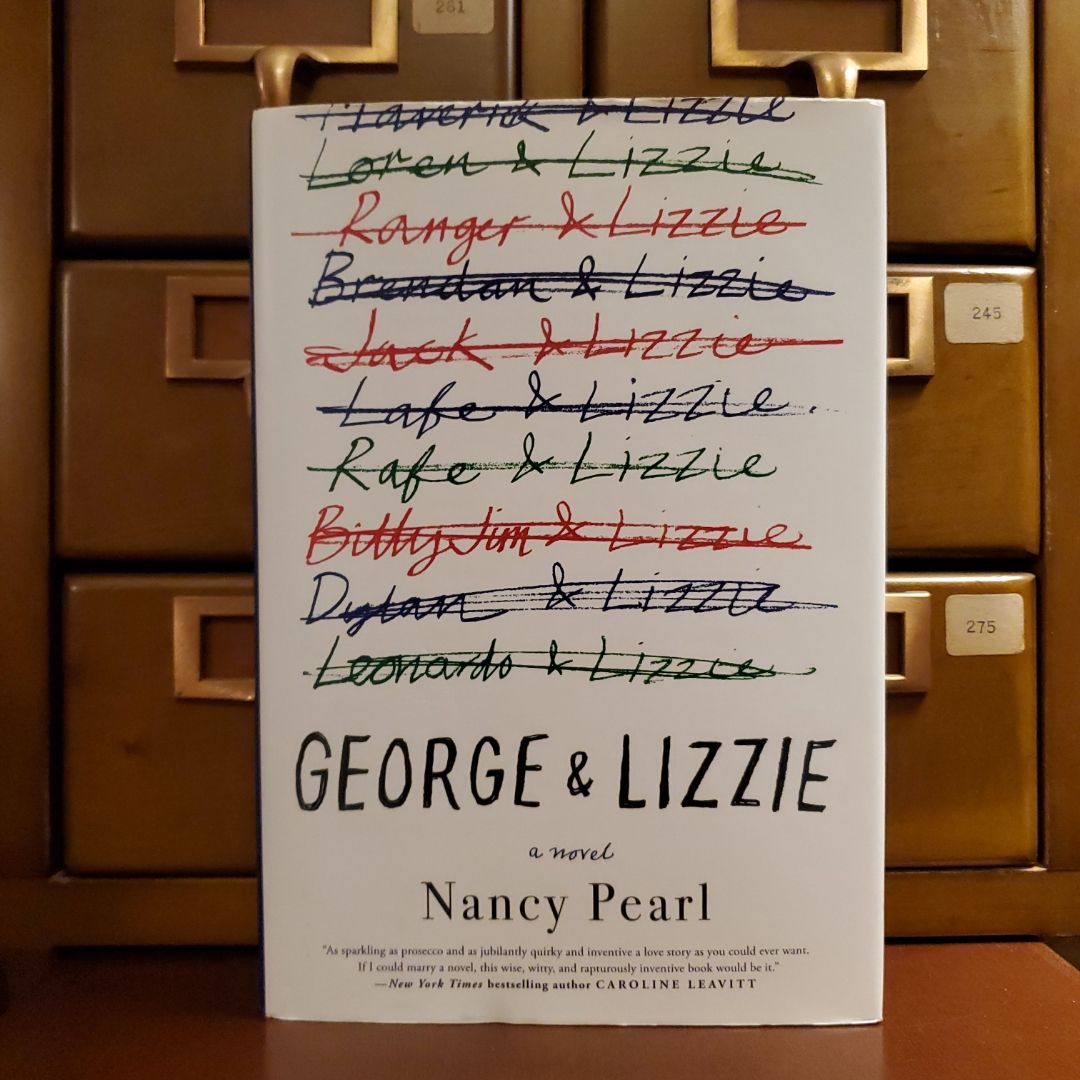 261
Maverick & Lizzie
Loren & Lizzie
Ranger & Lizzie
Brendan & Lizzie
245
Jack & Lizzie
Lafe & Lizzie.
Rafe & Lizzie
Billy Jim & Lizzie
Dylan & Lizzie
275
Leonardo & Lizzie
GEORGE & LIZZIE
a novel
Nancy Pearl
"As sparkling as prosecco and as jubilantly quirky and inventive a love story as you could ever want.
If I could marry a novel, this wise, witty, and rapturously inventive book would be it."
—New York Times bestselling author CAROLINE LEAVITT